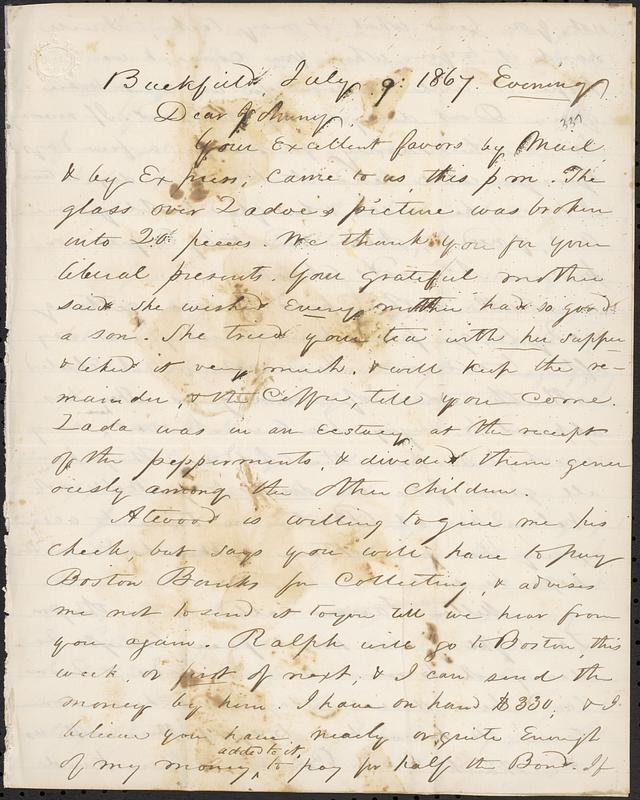 Buckfield, July 9: 1867. Evening.
Dear Johnny.
337
Your Excellent favors by Mail
& by Express, came to us this p m. The
glass over Zadoc's picture was broken
into 20 pieces. We thank you for your
liberal presents. Your grateful mother
said she wished Every mother had so good
a son. She tried your tea with her supper
& liked it very much. & will keep the re-
mainder, & the Coffee, till you come.
Zada was in an ecstacy at the receipt
of the pepperments, & divided them gener
ously among the other children.
Atwood is willing to give me his
check, but says you will have to pay
Boston Banks for Collecting, & advises
me not to send it to you till we hear from
you again. Ralph will go to Boston this
week, or first of next, & I can send the
money by him. I have on hand $330, & I
believe you have nearly or quite Enough
of my money, added to it, to pay for half the Bond. If